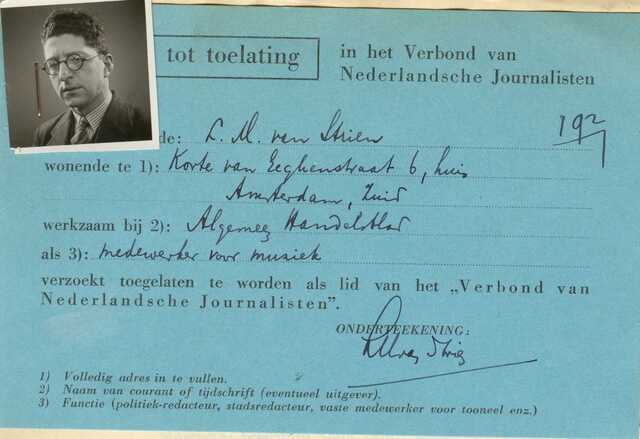 tot toelating
in het Verbond van
Nederlandsche Journalisten
de: L. M. van Strien
wonende te 1): Korte van Eeghenstraat 6, huis
Amsterdam, Zuid
werkzaam bij 2): Algemeen Handelsblad
als 3): medewerker voor muziek
verzoekt toegelaten te worden als lid van het „Verbond van
Nederlandsche Journalisten”.
ONDERTEEKENING:
1) Volledig adres in te vullen.
2) Naam van courant of tijdschrift (eventueel uitgever).
3) Functie (politiek-redacteur, stadsredacteur, vaste medewerker voor tooneel enz.)